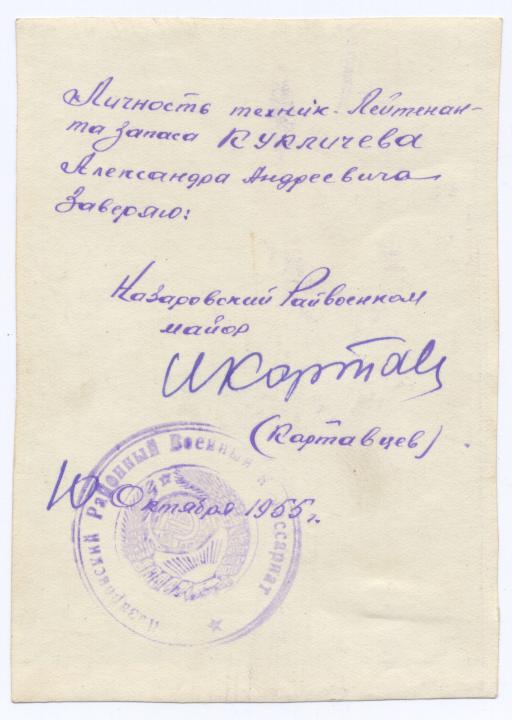 Личность техник-Лейтенан-
та запаса КУКЛИЧЕВА
Александра Андреевича
Заверяю:
Назаровский Райвоенком
майор
ИКортав
(Картавцев).
10 Октября 1955 г.
Назаровский Районный Военный Комиссариат